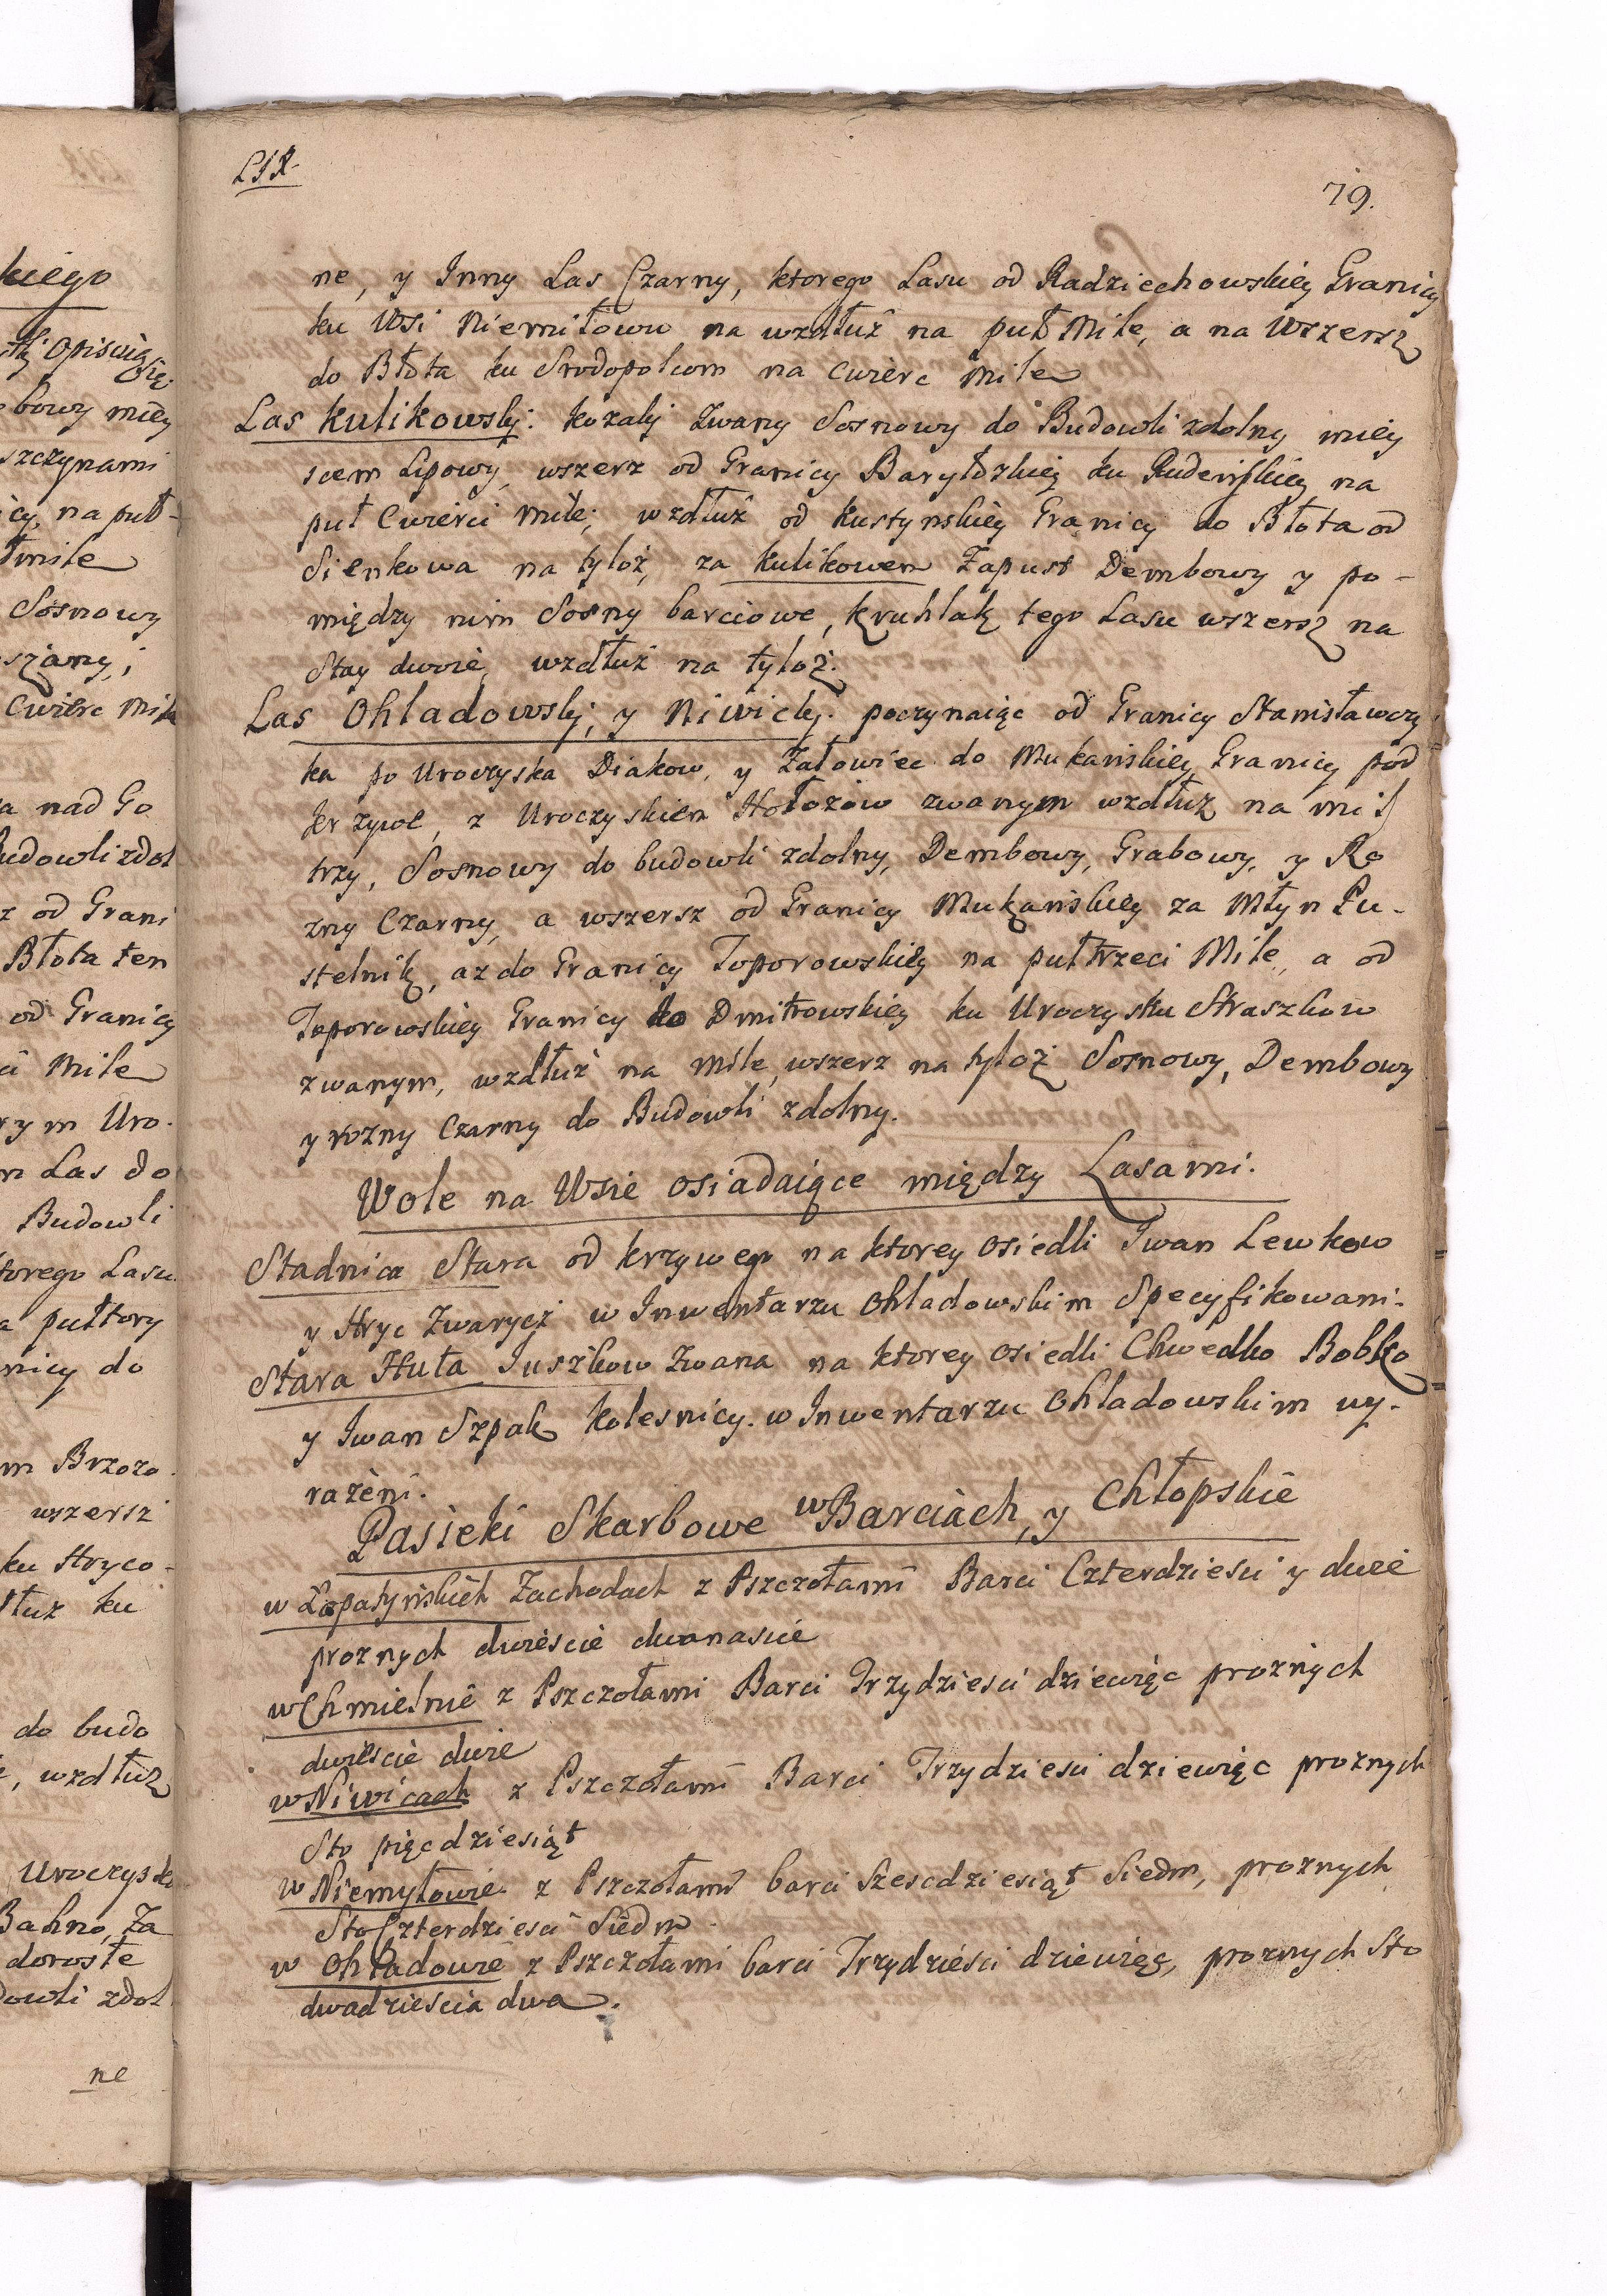 LIX.
79.
ne, y Inny Las Czarny, ktorego Lasu od Radziechowskiey Granicy
ku Wsi Niemiłowu na wzdłuż na puł Mile, a na Wszersz
do Błota ku Srodopolcom na cwierc Mile
Las Kulikowskj: kozalj Zwany Sosnowy do Budowli zdolny miey
scem Lipowy, wszerz od Granicy Baryłdzkiey ku Rudenskiey na
puł Cwierci Mile; wzdłuż od Kustynskiey Granicy do Błota od
Sienkowa na tyloż, za Kulikowem Zapust Dembowy y po-
między nim Sosny barciowe, Kruhlak tego Lasu wszersz na
Stay dwoie, wzdłuż na tyloż.
Las Ohladowskj, y Niwickj. poczynaiąc od Granicy Stanisławczy
ka po Uroczyska Diakow, y Załowiec do Mukańskiey Granicy pod
krzywe, z Uroczyskiem Hołozow zwanym wzdłuż na mil
trzy, Sosnowy do budowli zdolny, Dembowy, Grabowy, y Ro
zny Czarny, a wszersz od Granicy Mukańskiey za Młyn Pu-
stelnik, az do Granicy Toporowskiey na pułtrzeci Mile, a od
Toporowskiey Granicy ko Dmitrowskiey ku Uroczysku Straszkow
zwanym, wzdłuż na mile, wszerz na tyloż Sosnowy, Dembowy
y rozny Czarny do Budowli zdolny.
Wole na Wsie osiadaiące między Lasami.
Stadnica Stara od krzywego na ktorey osiedli Iwan Lewkow
y Hryc Zwarycz w Inwentarzu Ohladowskim Specyfikowani.
Stara Huta Juszkow Zwana na ktorey osiedli Chwedko Bobko
y Iwan Szpak Kolesnicy. w Inwentarzu Ohladowskim wy-
rażeni.
Pasieki Skarbowe w Barciach, y Chłopskie
w Łopatyńskich Zachodach z Pszczołami Barci Czterdziesci y dwie
proznych dwiescie dwanascie
w Chmielnie z Pszczołami Barci Trzydziesci dziewięc proznych
dwiescie dwie
w Niwicach z Pszczołami Barci Trzydziesci dziewięc proznych
Sto pięcdziesiąt
w Niemyłowie z Pszczołami barci Szescdziesiąt Siedm, proznych
Sto Czterdziesci Siedm
w Ohladowie z Pszczołami barci Trzydziesci dziewięc, proznych Sto
dwadziescia dwa.